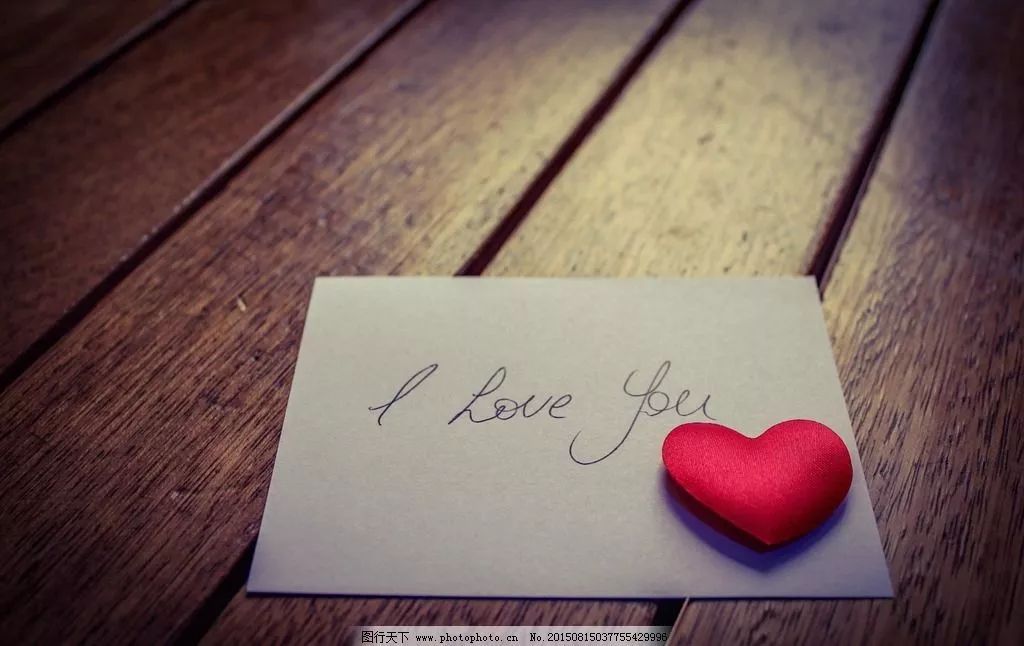 I Love You
图行天下 www.photophoto.cn No.20150815037755429996